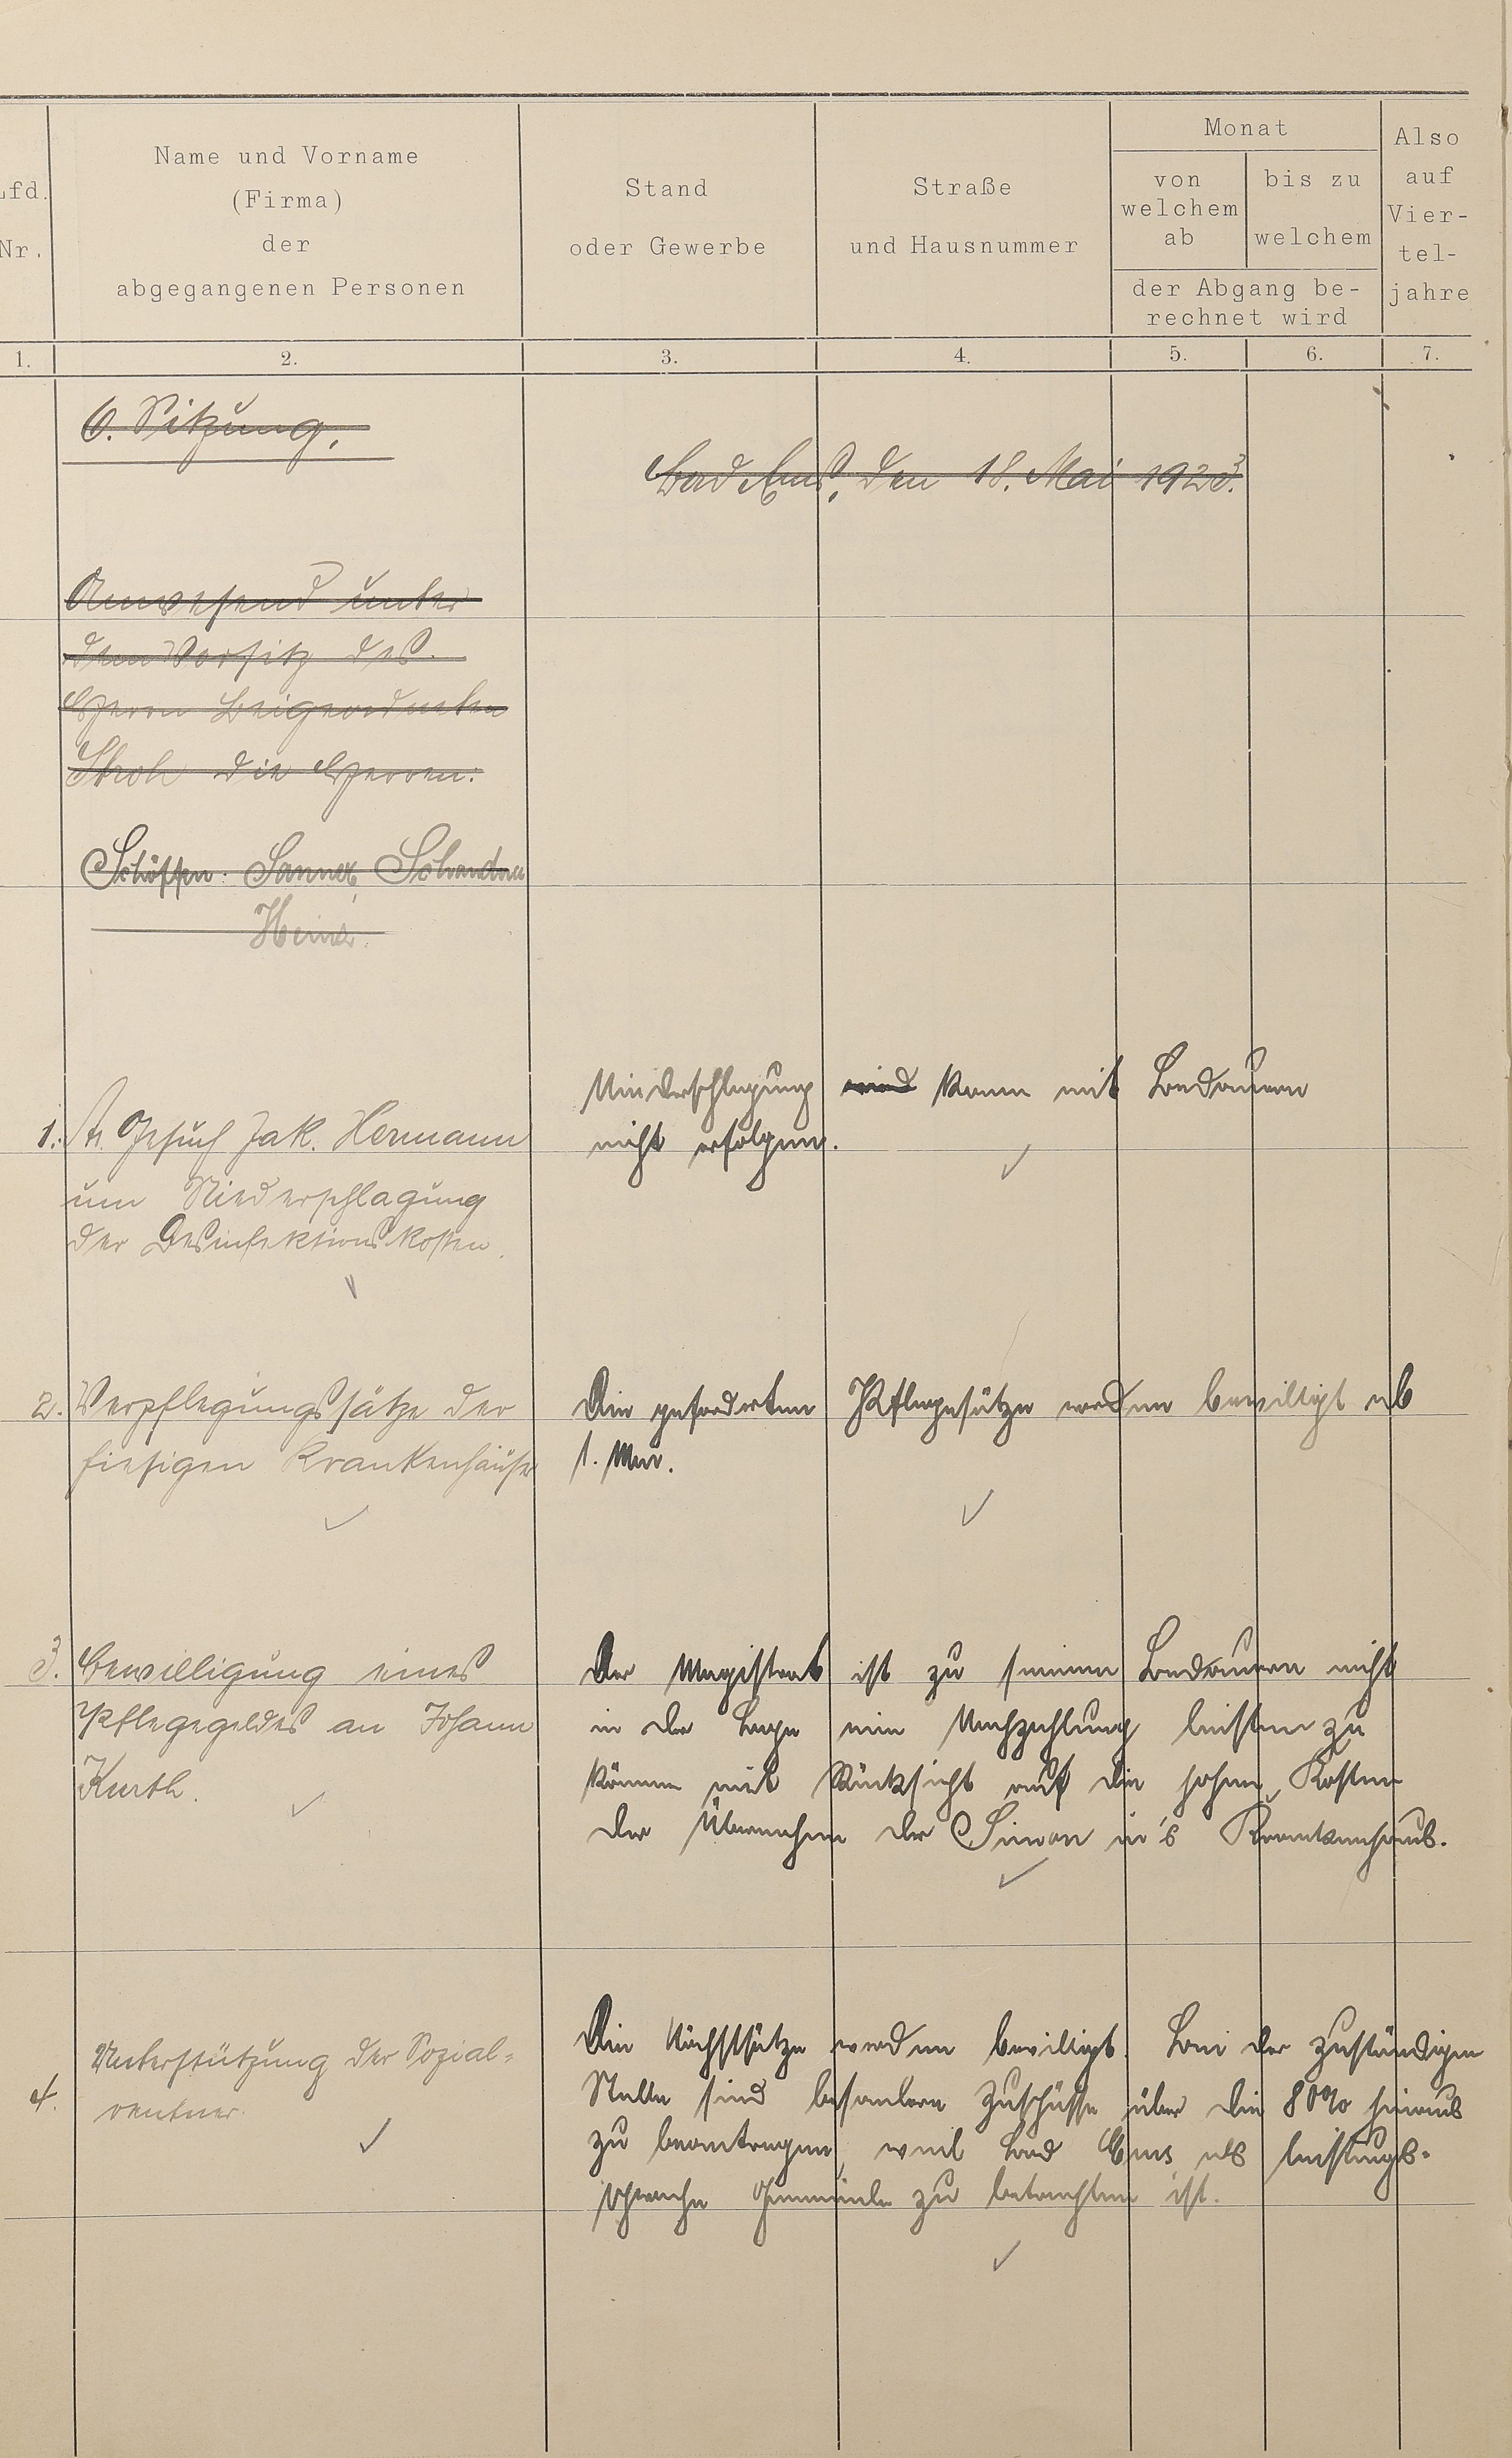 Lfd.
Nr.
Name und Vorname
(Firma)
der
abgegangenen Personen
Stand
oder Gewerbe
Straße
und Hausnummer
Monat
von
welchem
ab
bis zu
welchem
der Abgang be-
rechnet wird
Also
auf
Vier-
tel-
jahre
1. 2. 3. 4. 5. 6. 7.
6. Sitzung.
Bad Ems, den 18. Mai 1923.
Anwesend unter
dem Vorsitz des
Herrn Beigeordneten
Stroh die Herren:
Schöffen: Sanner, Schandua
Heim
1. Gesuch Jak. Hermann
um Niederschlagung
der Desinfektionskosten.
Niederschlagung wird kann mit Bedauern
nicht erfolgen.
2. Verpflegungssätze der
hiesigen Krankenhäuser
Die geforderten Pflegesätze werden bewilligt ab
1. Mai.
3. Bewilligung eines
Pflegegeldes an Johann
Kurth.
Der Magistrat ist zu seinem Bedauern nicht
in der Lage eine Nachzahlung leisten zu
können mit Rücksicht auf die hohen Kosten
der Übernahme der Simon in's Krankenhaus.
4. Unterstützung der Sozial-
rentner.
Die Höchstsätze werden bewilligt. Bei der zuständigen
Stelle sind besondere Zuschüsse über die 80% hinaus
zu beantragen, weil Bad Ems als leistungs-
schwache Gemeinde zu betrachten ist.